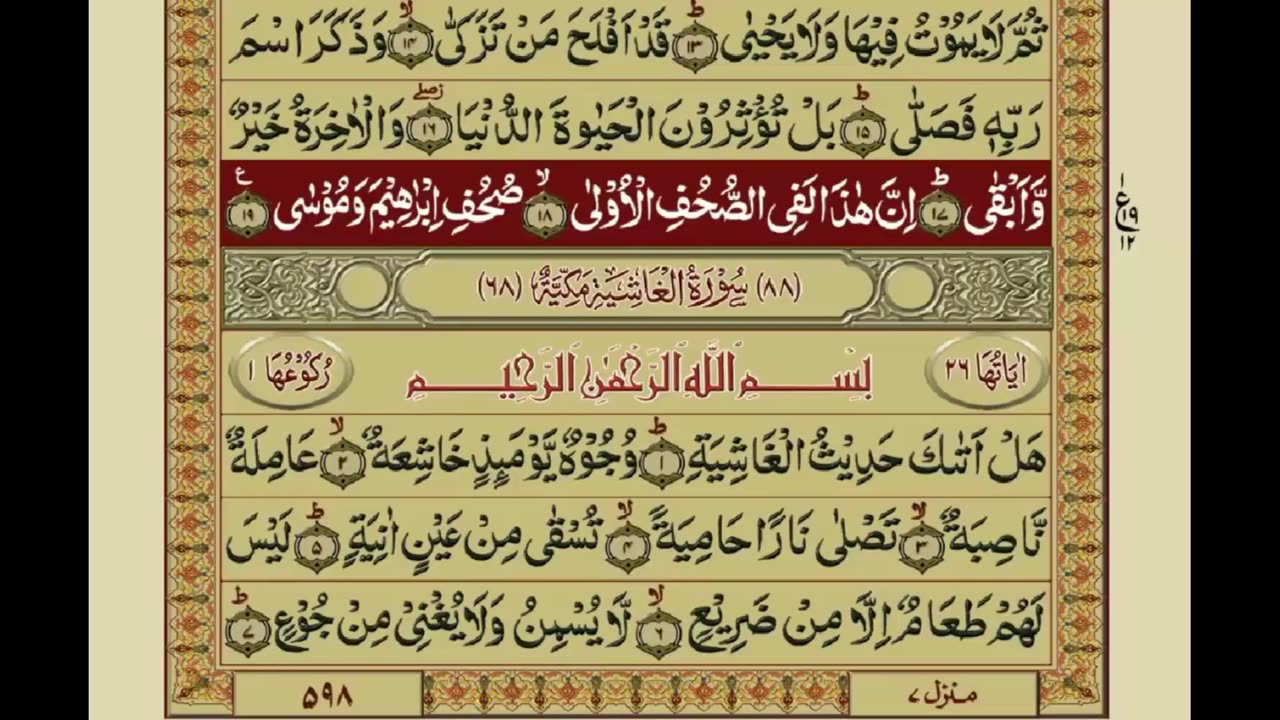 ثُمَّ لَا يَمُوْتُ فِيْهَا وَلَا يَحْيٰى ؕ﴿۱۳﴾ قَدْ اَفْلَحَ مَنْ تَزَكّٰى ۙ﴿۱۴﴾ وَذَكَرَ اسْمَ
رَبِّهٖ فَصَلّٰى ؕ﴿۱۵﴾ بَلْ تُؤْثِرُوْنَ الْحَيٰوةَ الدُّنْيَا ۖ﴿۱۶﴾ وَالْاٰخِرَةُ خَيْرٌ
وَّاَبْقٰى ؕ﴿۱۷﴾ اِنَّ هٰذَا لَفِى الصُّحُفِ الْاُوْلٰى ۙ﴿۱۸﴾ صُحُفِ اِبْرٰهِيْمَ وَمُوْسٰى ﴿۱۹﴾ ع
ع ۱ ۱۹ ۱۲
(۸۸) سُوْرَةُ الْغَاشِيَةِ مَكِّيَّةٌ (۶۸)
اٰيَاتُهَا ۲۶ بِسْمِ اللّٰهِ الرَّحْمٰنِ الرَّحِيْمِ رُكُوْعُهَا ۱
هَلْ اَتٰىكَ حَدِيْثُ الْغَاشِيَةِ ؕ﴿۱﴾ وُجُوْهٌ يَّوْمَىِٕذٍ خَاشِعَةٌ ۙ﴿۲﴾ عَامِلَةٌ
نَّاصِبَةٌ ۙ﴿۳﴾ تَصْلٰى نَارًا حَامِيَةً ۙ﴿۴﴾ تُسْقٰى مِنْ عَيْنٍ اٰنِيَةٍ ؕ﴿۵﴾ لَيْسَ
لَهُمْ طَعَامٌ اِلَّا مِنْ ضَرِيْعٍ ۙ﴿۶﴾ لَّا يُسْمِنُ وَلَا يُغْنِىْ مِنْ جُوْعٍ ؕ﴿۷﴾
منزل ۷ ۵۹۸